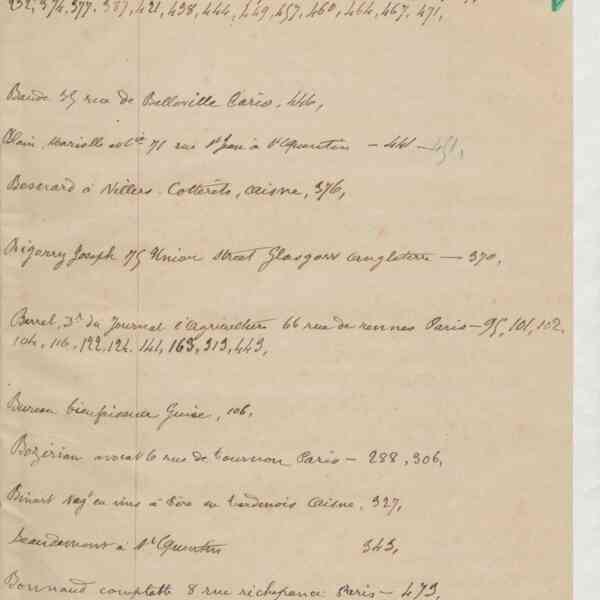 232, 374, 377, 387, 421, 438, 444, 449, 457, 460, 464, 467, 471,
Baude 39 rue de Belleville Paris, 446,
Blain, Marielle et Cie 71 rue St Jean à St Quentin - 441 - 451,
Besnard à Villers-Cotterêts, Aisne, 376,
Bigorry Joseph 75 Union Street Glasgow Angleterre - 370,
Barral, Dr du Journal d'Agriculture 66 rue de rennes Paris - 95, 101, 102,
104, 116, 122, 124, 141, 163, 313, 443,
Bureau bienfaisance Guise, 106,
Bozérian avocat 6 rue de tournon Paris - 288, 306,
Binart Negt en vins à Fère en Tardenois Aisne, 327,
Beaudemont à St Quentin 343,
Bonnaud comptable 8 rue richepance Paris - 473,